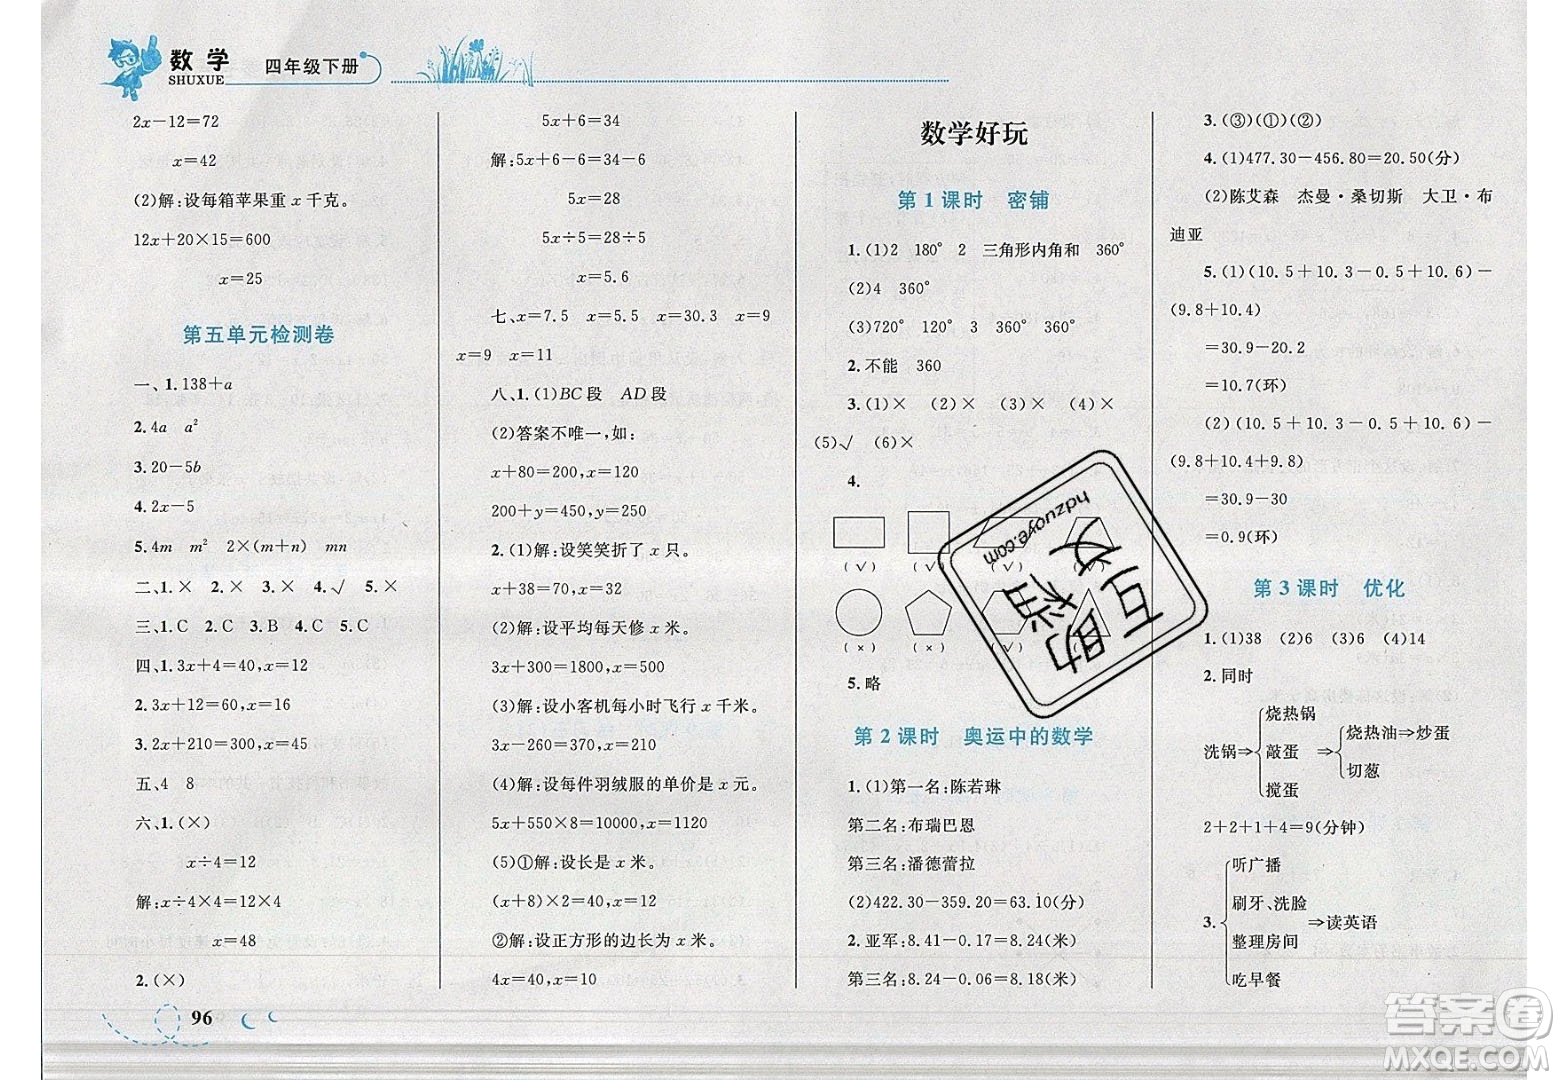 数学
SHUXUE
四年级下册
2x－12＝72
x＝42
(2)解:设每箱苹果重 x 千克。
12x＋20×15＝600
x＝25
第五单元检测卷
一、1.138＋a
2.4a a²
3.20－5b
4.2x－5
5.4m m² 2×(m＋n) mn
二、1.× 2.× 3.× 4.√ 5.×
三、1.C 2.C 3.B 4.C 5.C
四、1.3x＋4＝40,x＝12
2.3x＋12＝60,x＝16
3.2x－10＝80,x＝45
五、4 8
六、1.(×)
x÷4＝12
解:x÷4×4＝12×4
x＝48
2.(×)
96
5x＋6＝34
解:5x＋6－6＝34－6
5x＝28
5x÷5＝28÷5
x＝5.6
七、x＝7.5 x＝5.5 x＝30.3 x＝9
x＝9 x＝11
八、1.(1)BC 段 AD 段
(2)答案不唯一,如:
x＋80＝200,x＝120
200＋y＝450,y＝250
2.(1)解:设笑笑折了 x 只。
x＋38＝70,x＝32
(2)解:设平均每天修 x 米。
3x＋300＝1800,x＝500
(3)解:设小客机每小时飞行 x 千米。
3x－260＝370,x＝210
(4)解:设每件羽绒服的单价是 x 元。
5x＋550×8＝10000,x＝1120
(5)①解:设长是 x 米。
(x＋8)×2＝40,x＝12
②解:设正方形的边长为 x 米。
4x＝40,x＝10
数学好玩
第 1 课时 密铺
1.(1)2 180° 2 三角形内角和 360°
(2)4 360°
(3)720° 120° 3 360° 360°
2.不能 360
3.(1)× (2)× (3)× (4)×
(5)√ (6)×
4.
(√) (√) (√) (√)
(×) (×)
5.略
第 2 课时 奥运中的数学
1.(1)第一名:陈若琳
第二名:布瑞巴恩
第三名:潘德蕾拉
(2)422.30－359.20＝63.10(分)
2.亚军:8.41－0.17＝8.24(米)
第三名:8.24－0.06＝8.18(米)
3.(③)(①)(②)
4.(1)477.30－456.80＝20.50(分)
(2)陈艾森 杰曼·桑切斯 大卫·布
迪亚
5.(1)(10.5＋10.3－0.5＋10.6)－
(9.8＋10.4)
＝30.9－20.2
＝10.7(环)
(2)(10.5＋10.3－0.5＋10.6)－
(9.8＋10.4＋9.8)
＝30.9－30
＝0.9(环)
第 3 课时 优化
1.(1)38 (2)6 (3)6 (4)14
2.同时
洗锅⇒ 烧热锅 敲蛋 搅蛋 ⇒ 烧热油⇒炒蛋 切葱
2＋2＋1＋4＝9(分钟)
3. 听广播
刷牙、洗脸
整理房间
吃早餐
⇒读英语
互助作业
hdzuoye.com
答案圈
MXQE.COM